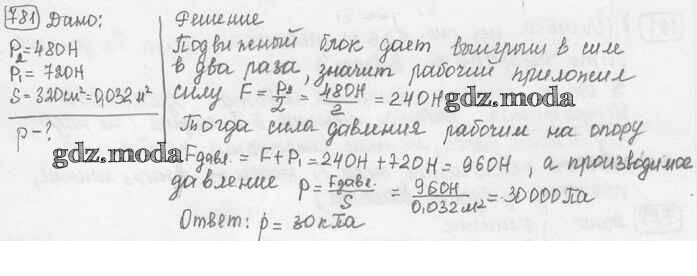 781 Дано:
P₂=480Н
P₁=720Н
S=320см²=0,032м²
p-?
Решение
Подвижный блок дает выигрыш в силе
в два раза, значит рабочий приложил
силу F = P₂/2 = 480Н/2 = 240Н
gdz.moda
Тогда сила давления рабочим на опору
gdz.moda
Fдавл. = F+P₁ = 240Н+720Н = 960Н, а производимое
давление p = Fдавл./S = 960Н/0,032м² = 30000Па
Ответ: p = 30кПа